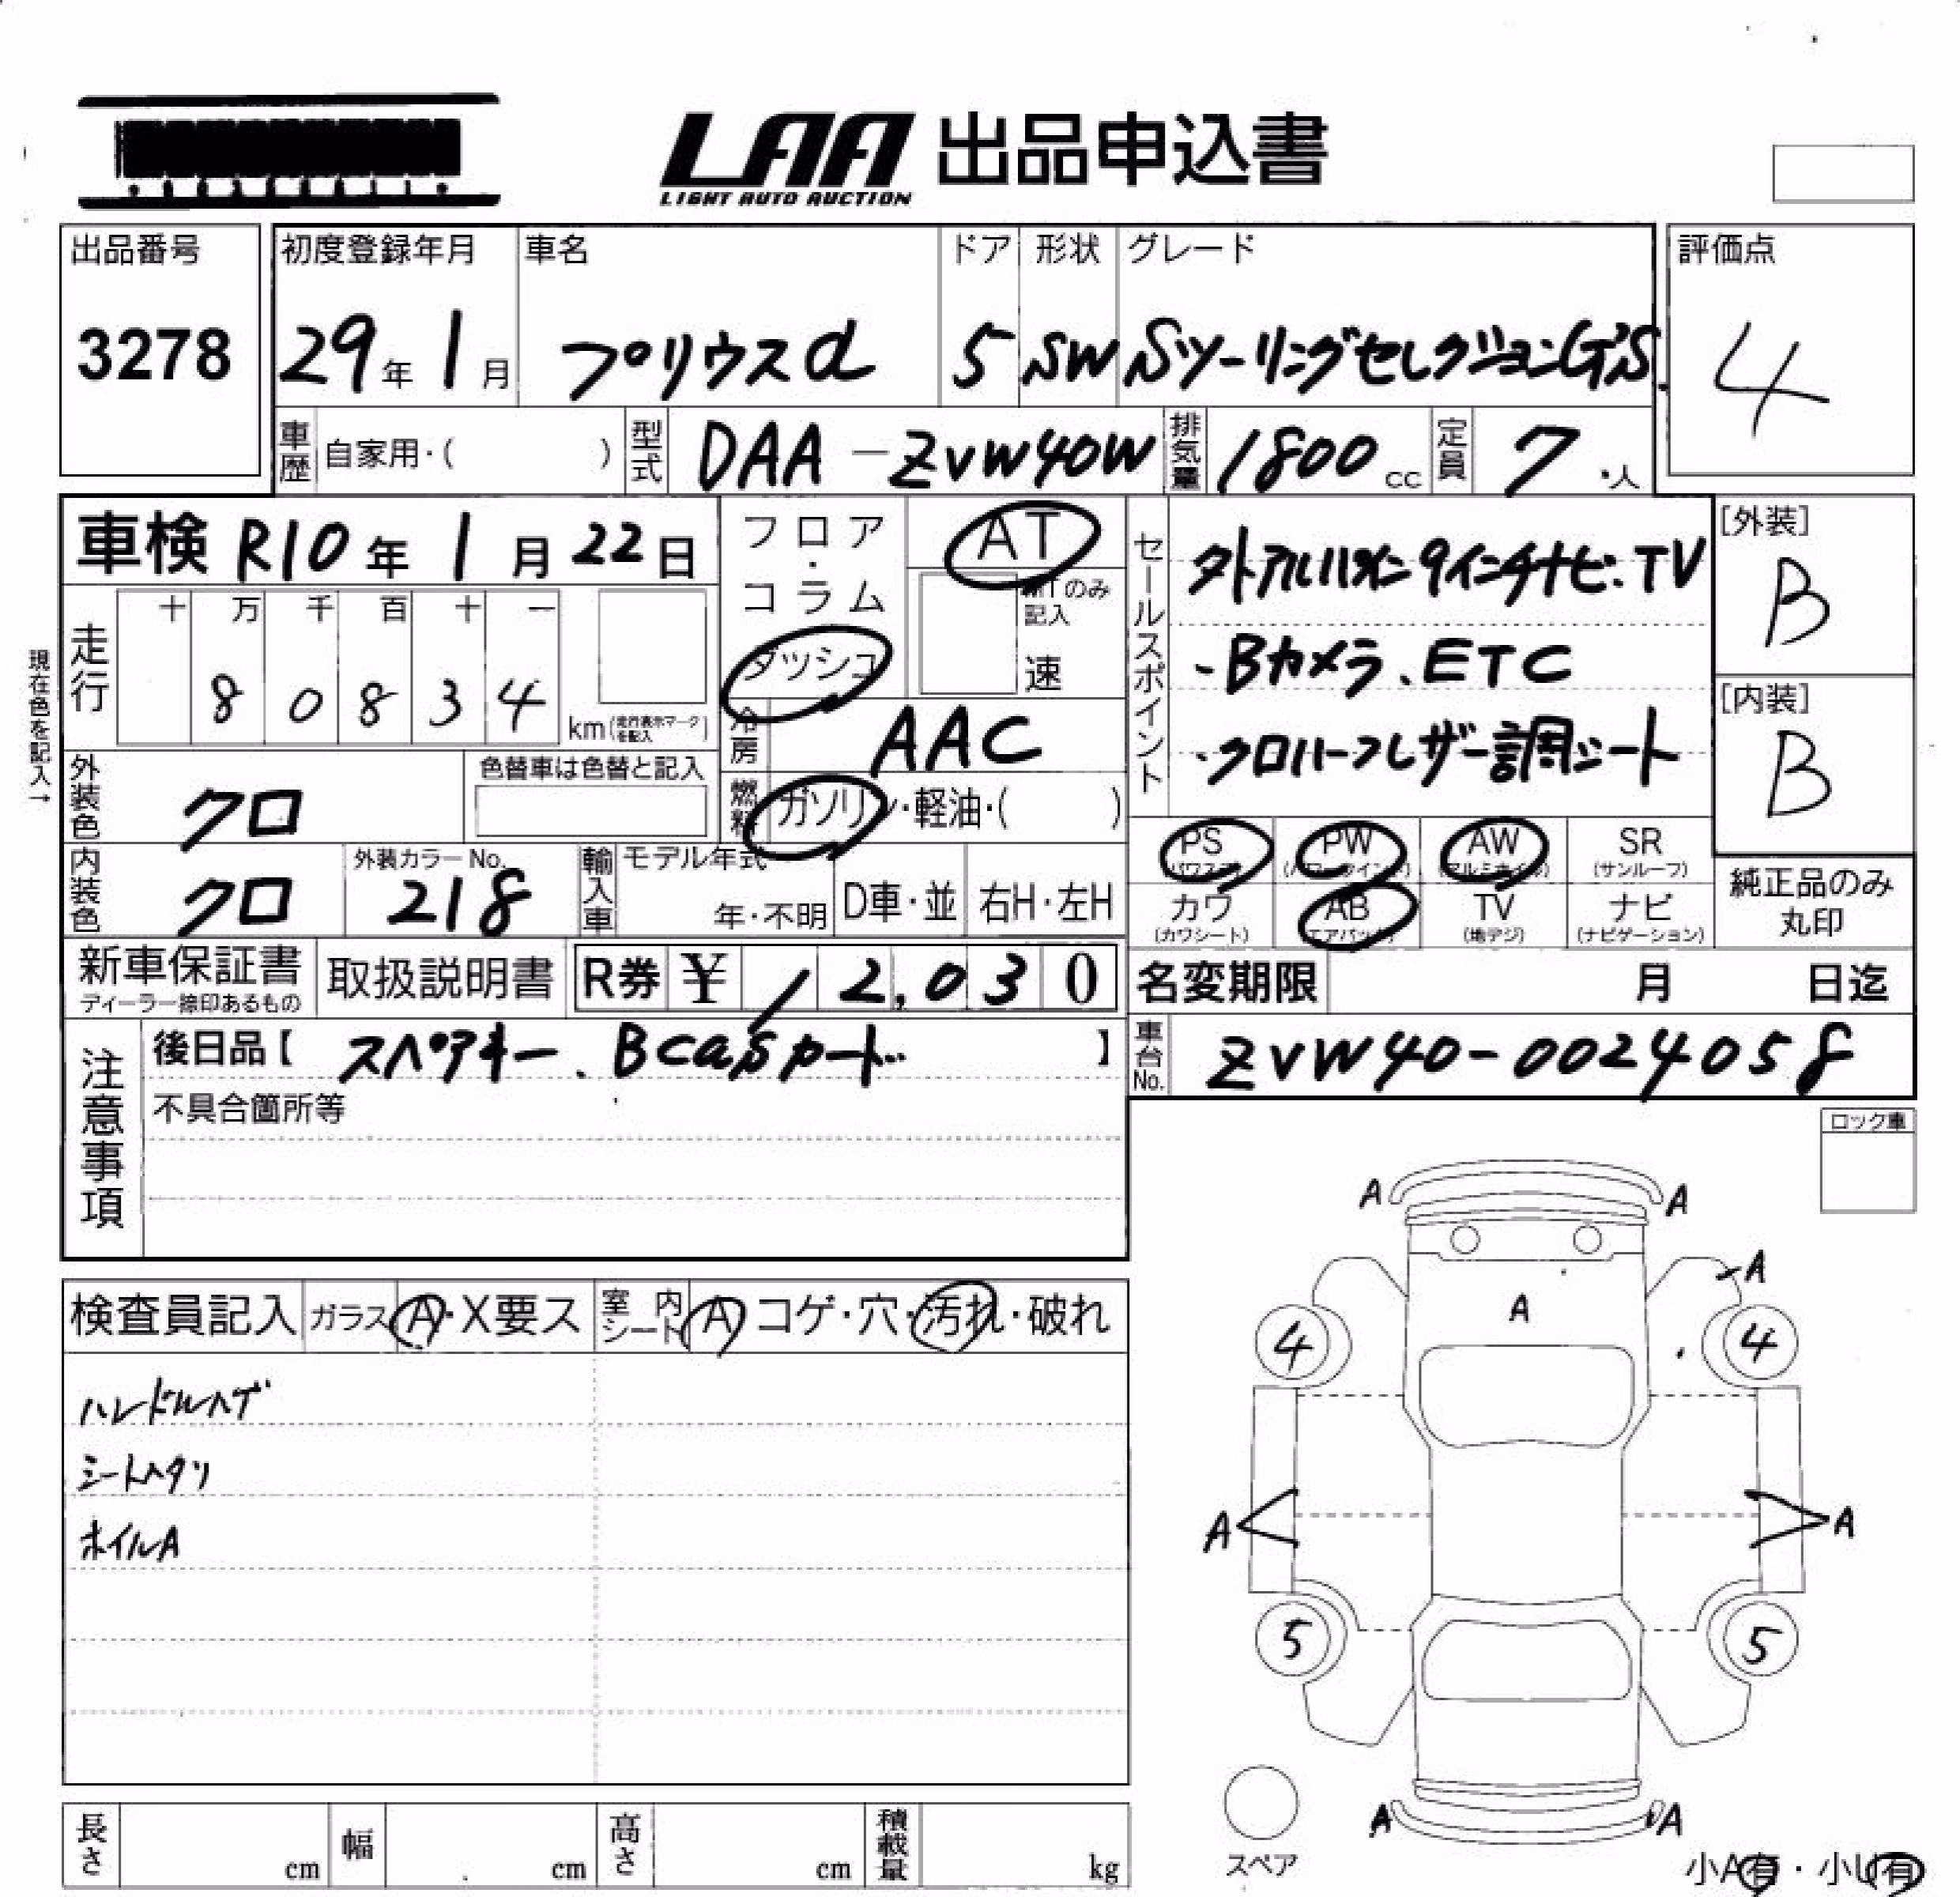 LAA 出品申込書
LIGHT AUTO AUCTION
出品番号 初度登録年月 車名 ドア 形状 グレード 評価点
3278 29年 1月 プリウスα 5 SW Sツーリングセレクション G'S 4
車歴 自家用・( ) 型式 DAA-ZVW40W 排気量 1800cc 定員 7人
車検 R10年 1月 22日 フロア・コラム ダッシュ AT セールスポイント [外装]
外アルパイン9インチナビ.TV B
MTのみ記入 速
走行 十 万 千 百 十 一
8 0 8 3 4 km(走行表示マークを記入)
・Bカメラ、ETC
現在色を記入→
[内装]
冷房 AAC ・クロハーフレザー調シート B
外装色 クロ 色替車は色替と記入 燃料 ガソリン・軽油・( )
PS (パワステ) PW (パワーウインド) AW (アルミホイル) SR (サンルーフ)
内装色 クロ 外装カラーNo. 218 輸入車 モデル年式 年・不明 D車・並 右H・左H
カワ (カワシート) AB (エアバック) TV (地デジ) ナビ (ナビゲーション)
純正品のみ
丸印
新車保証書 取扱説明書 R券 ¥ 12,030 名変期限 月 日迄
ディーラー捺印あるもの
注意事項 後日品【 スペアキー、Bcasカード 】 車台No. ZVW40-0024058
不具合箇所等
ロック車
A A
A
A
4 4
検査員記入 ガラス A・X要ス 室内シート A コゲ・穴・汚れ・破れ
ハンドルハゲ
シートヘタリ
ホイルA
A A
5 5
A A
スペア
長さ cm 幅 cm 高さ cm 積載量 kg
小A有・小U有